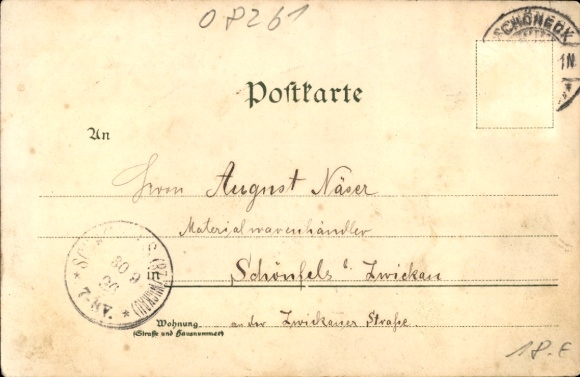 08261
SCHÖNECK
1N
Postkarte
An
Herrn August Näser
Materialwarenhändler
Schönfels b. Zwickau
Wohnung an der Zwickauer Straße
(Straße und Hausnummer)
18.E